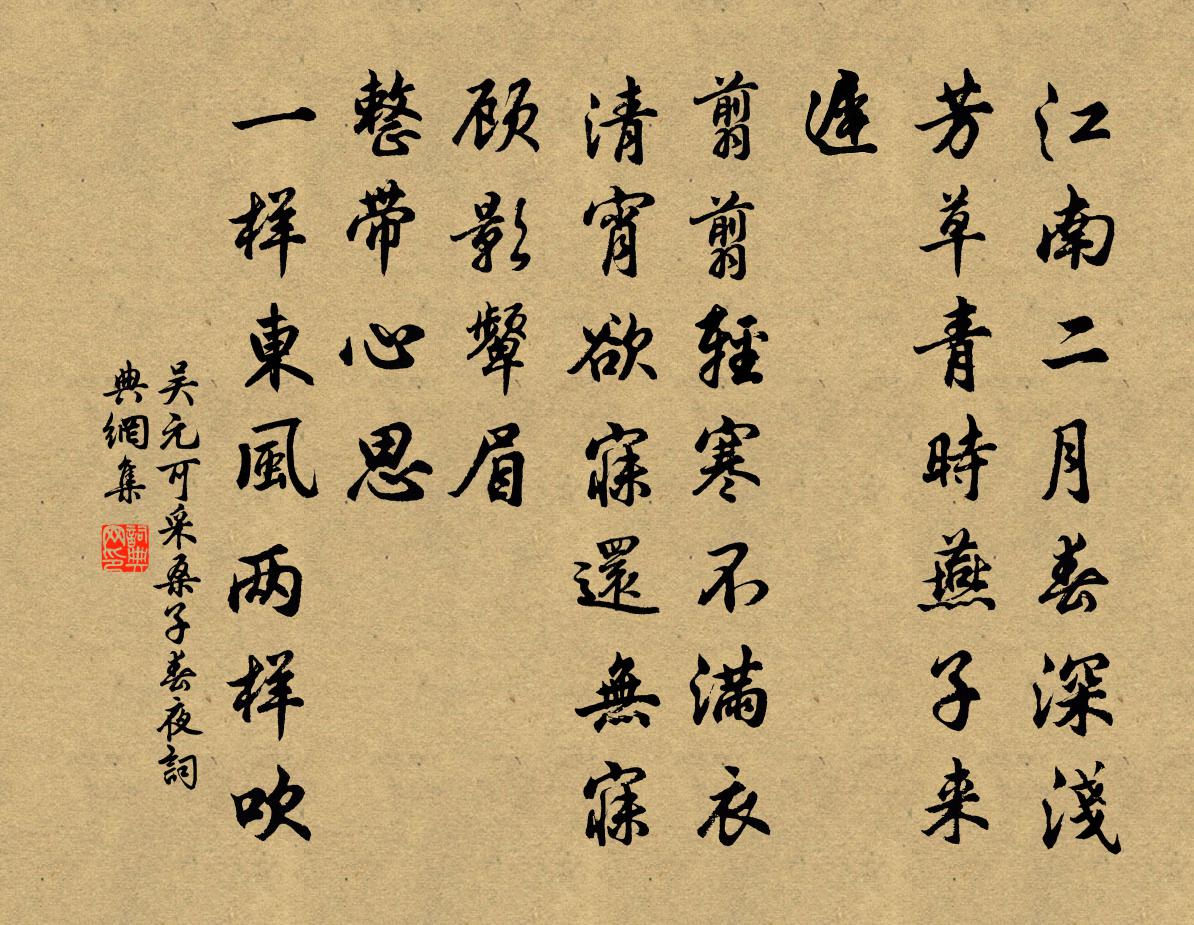 江南二月春深淺
芳草青時燕子来
遲
翦翦輕寒不滿衣
清宵欲寐還無寐
顾影顰眉
整带心思
一样東風两样吹
吴元可采桑子春夜詞
典網集
詞典网印